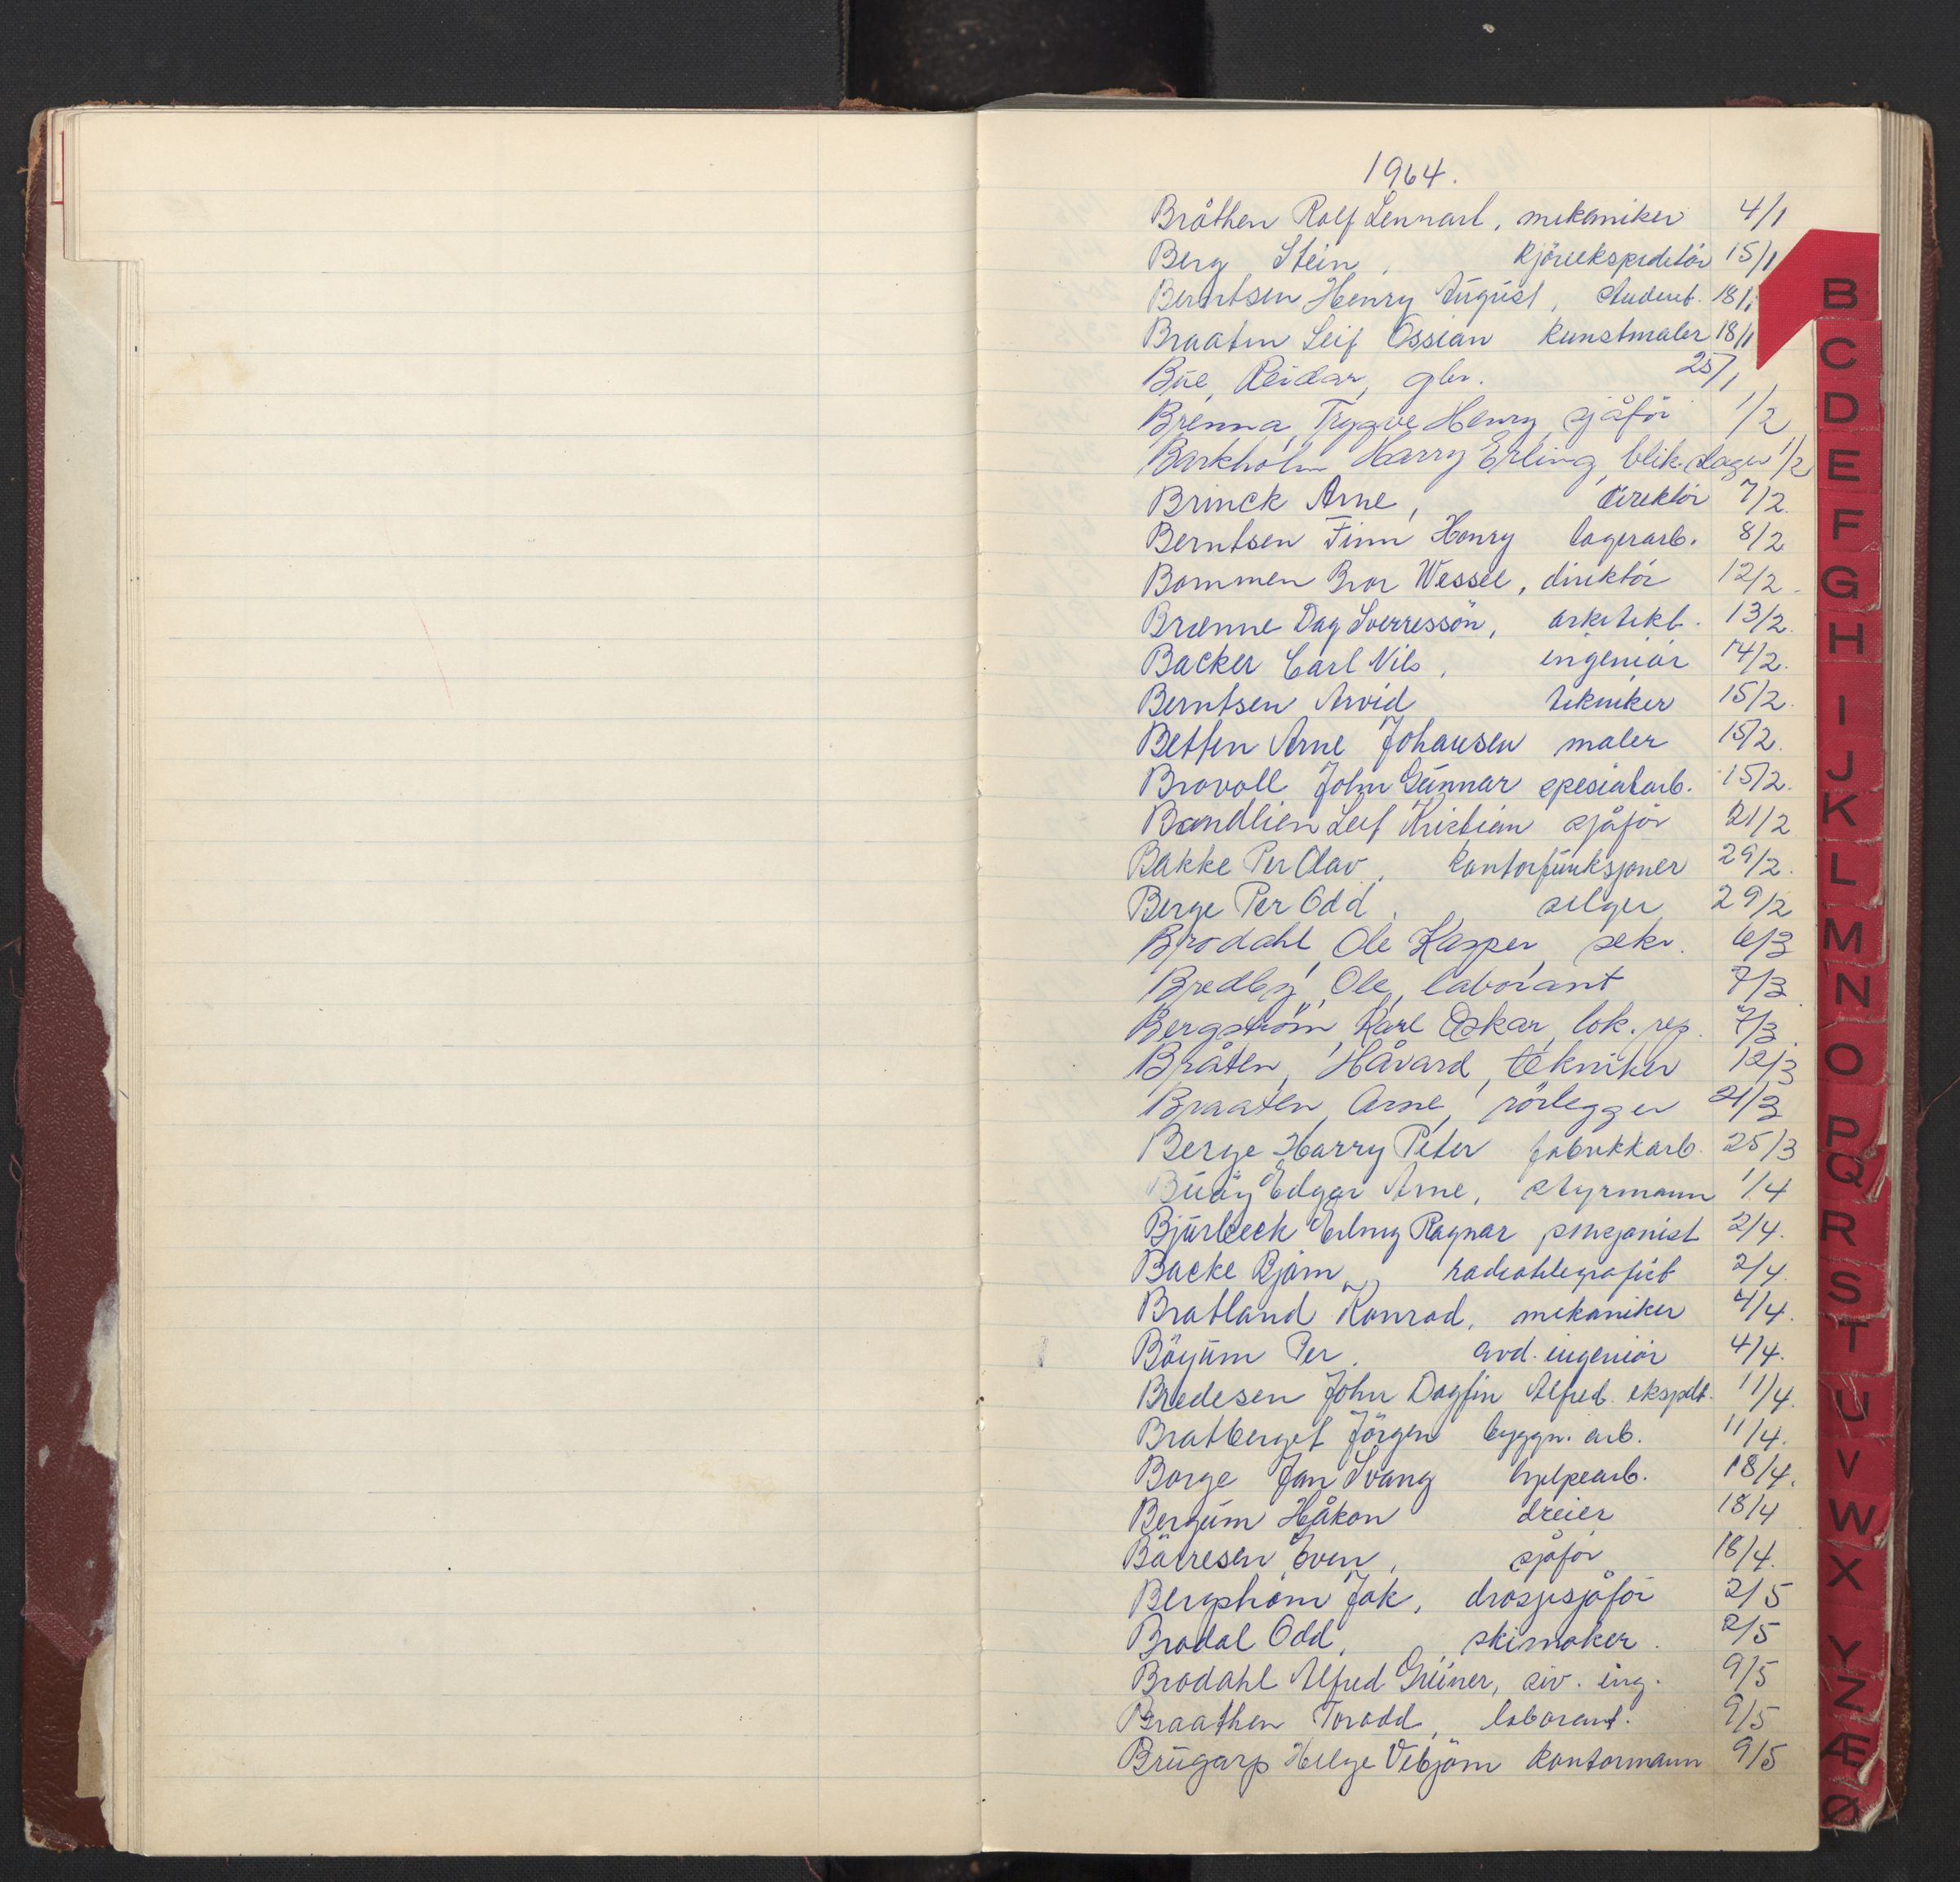 1964.
Bråthen Rolf Lennart, mekaniker 4/1
Berg Stein, kjöreekspeditör 15/1
Berntsen Henry August, student. 18/1
Braaten Leif Ossian kunstmaler 18/1
Bue, Reidar, gbr. 25/1
Brenna, Trygve Henry, sjåför 1/2
Barkholm, Harry Erling, blik.slager 1/2
Brinck Arne, direktör 7/2
Berntsen Finn Henry lagerarb. 8/2
Bommen Bror Wessel, direktör 12/2.
Brænne Dag Sverressön, arkitekt. 13/2.
Backer Carl Nils, ingeniör 14/2.
Berntsen Arvid tekniker 15/2.
Betten Arne Johansen maler 15/2.
Brovoll John Gunnar spesialarb. 15/2.
Bandlien Leif Kristian sjåför 21/2
Bakke Per Olav, kontorfunksjonær 29/2.
Berge Per Odd, selger 29/2
Brodahl, Ole Kasper, sekr. 6/3
Bredby, Ole, laborant 7/3
Bergström, Karl Oskar, lok.rep. 7/3.
Bråten, Håvard, tekniker 12/3
Braaten, Arne, rörlegger 21/3
Berge Harry Peter fabrikkarb. 25/3
Edgar Arne, styrmann 1/4
Bjurbeck Erling Ragnar pensjonist 2/4.
Backe Björn, radiotelegrafist 2/4.
Bratland Konrad, mekaniker 4/4.
Böyum Per, avd. ingeniör 4/4.
Bredesen John Dagfin Alfred. ekspdt. 11/4.
Bratberget Jörgen byggn. arb. 11/4.
Borge Jan Svang hjelpearb. 18/4.
Bergum Håkon dreier 18/4
Bårresen Even, sjåför 18/4.
Bergström Jak, drosjesjåför 2/5
Brodal Odd, skimaker. 2/5
Brodahl Alfred Greiner, siv. ing. 9/5
Braathen Torodd, laborant. 9/5
Brugarp Helge Vebjörn kontormann 9/5
B
C
D
E
F
G
H
I
J
K
L
M
N
O
P
Q
R
S
T
U
V
W
X
Y
Z
Æ
Ø